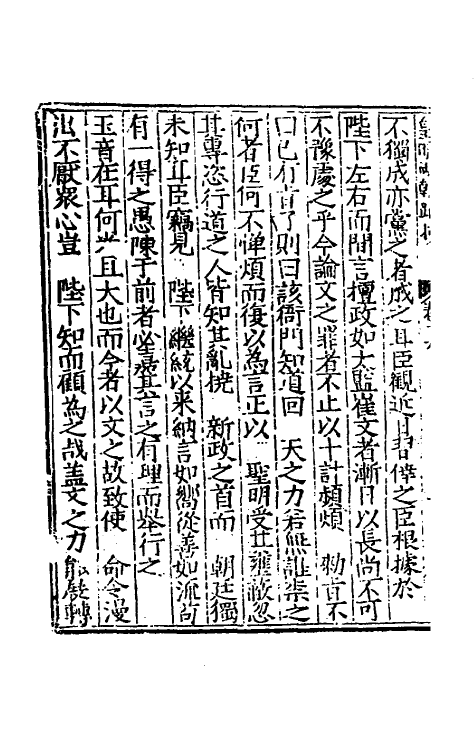 皇明嘉朝疏抄 卷十八
不獨成亦黨之者成之耳臣觀近日習倖之臣根據於
陛下左右而間言擅政如太監崔文者漸日以長尚不可
不豫處之乎今論文之罪者不止以十計頻煩 勑旨不
曰已有旨了則曰該衙門知道回 天之力若無誰柒之
何者臣何不憚煩而復以為言正以 聖明受其壅蔽忽
其專恣行道之人皆知其亂撓 新政之首而 朝廷獨
未知耳臣竊見 陛下繼統以来納言如嚮從善如流苟
有一得之愚陳于前者必喜蓋其言之有理而舉行之
玉音在耳何光且大也而今者以文之故致使 命令漫
出不厭衆心豈 陛下知而顧為之哉盖文之力能聳轉